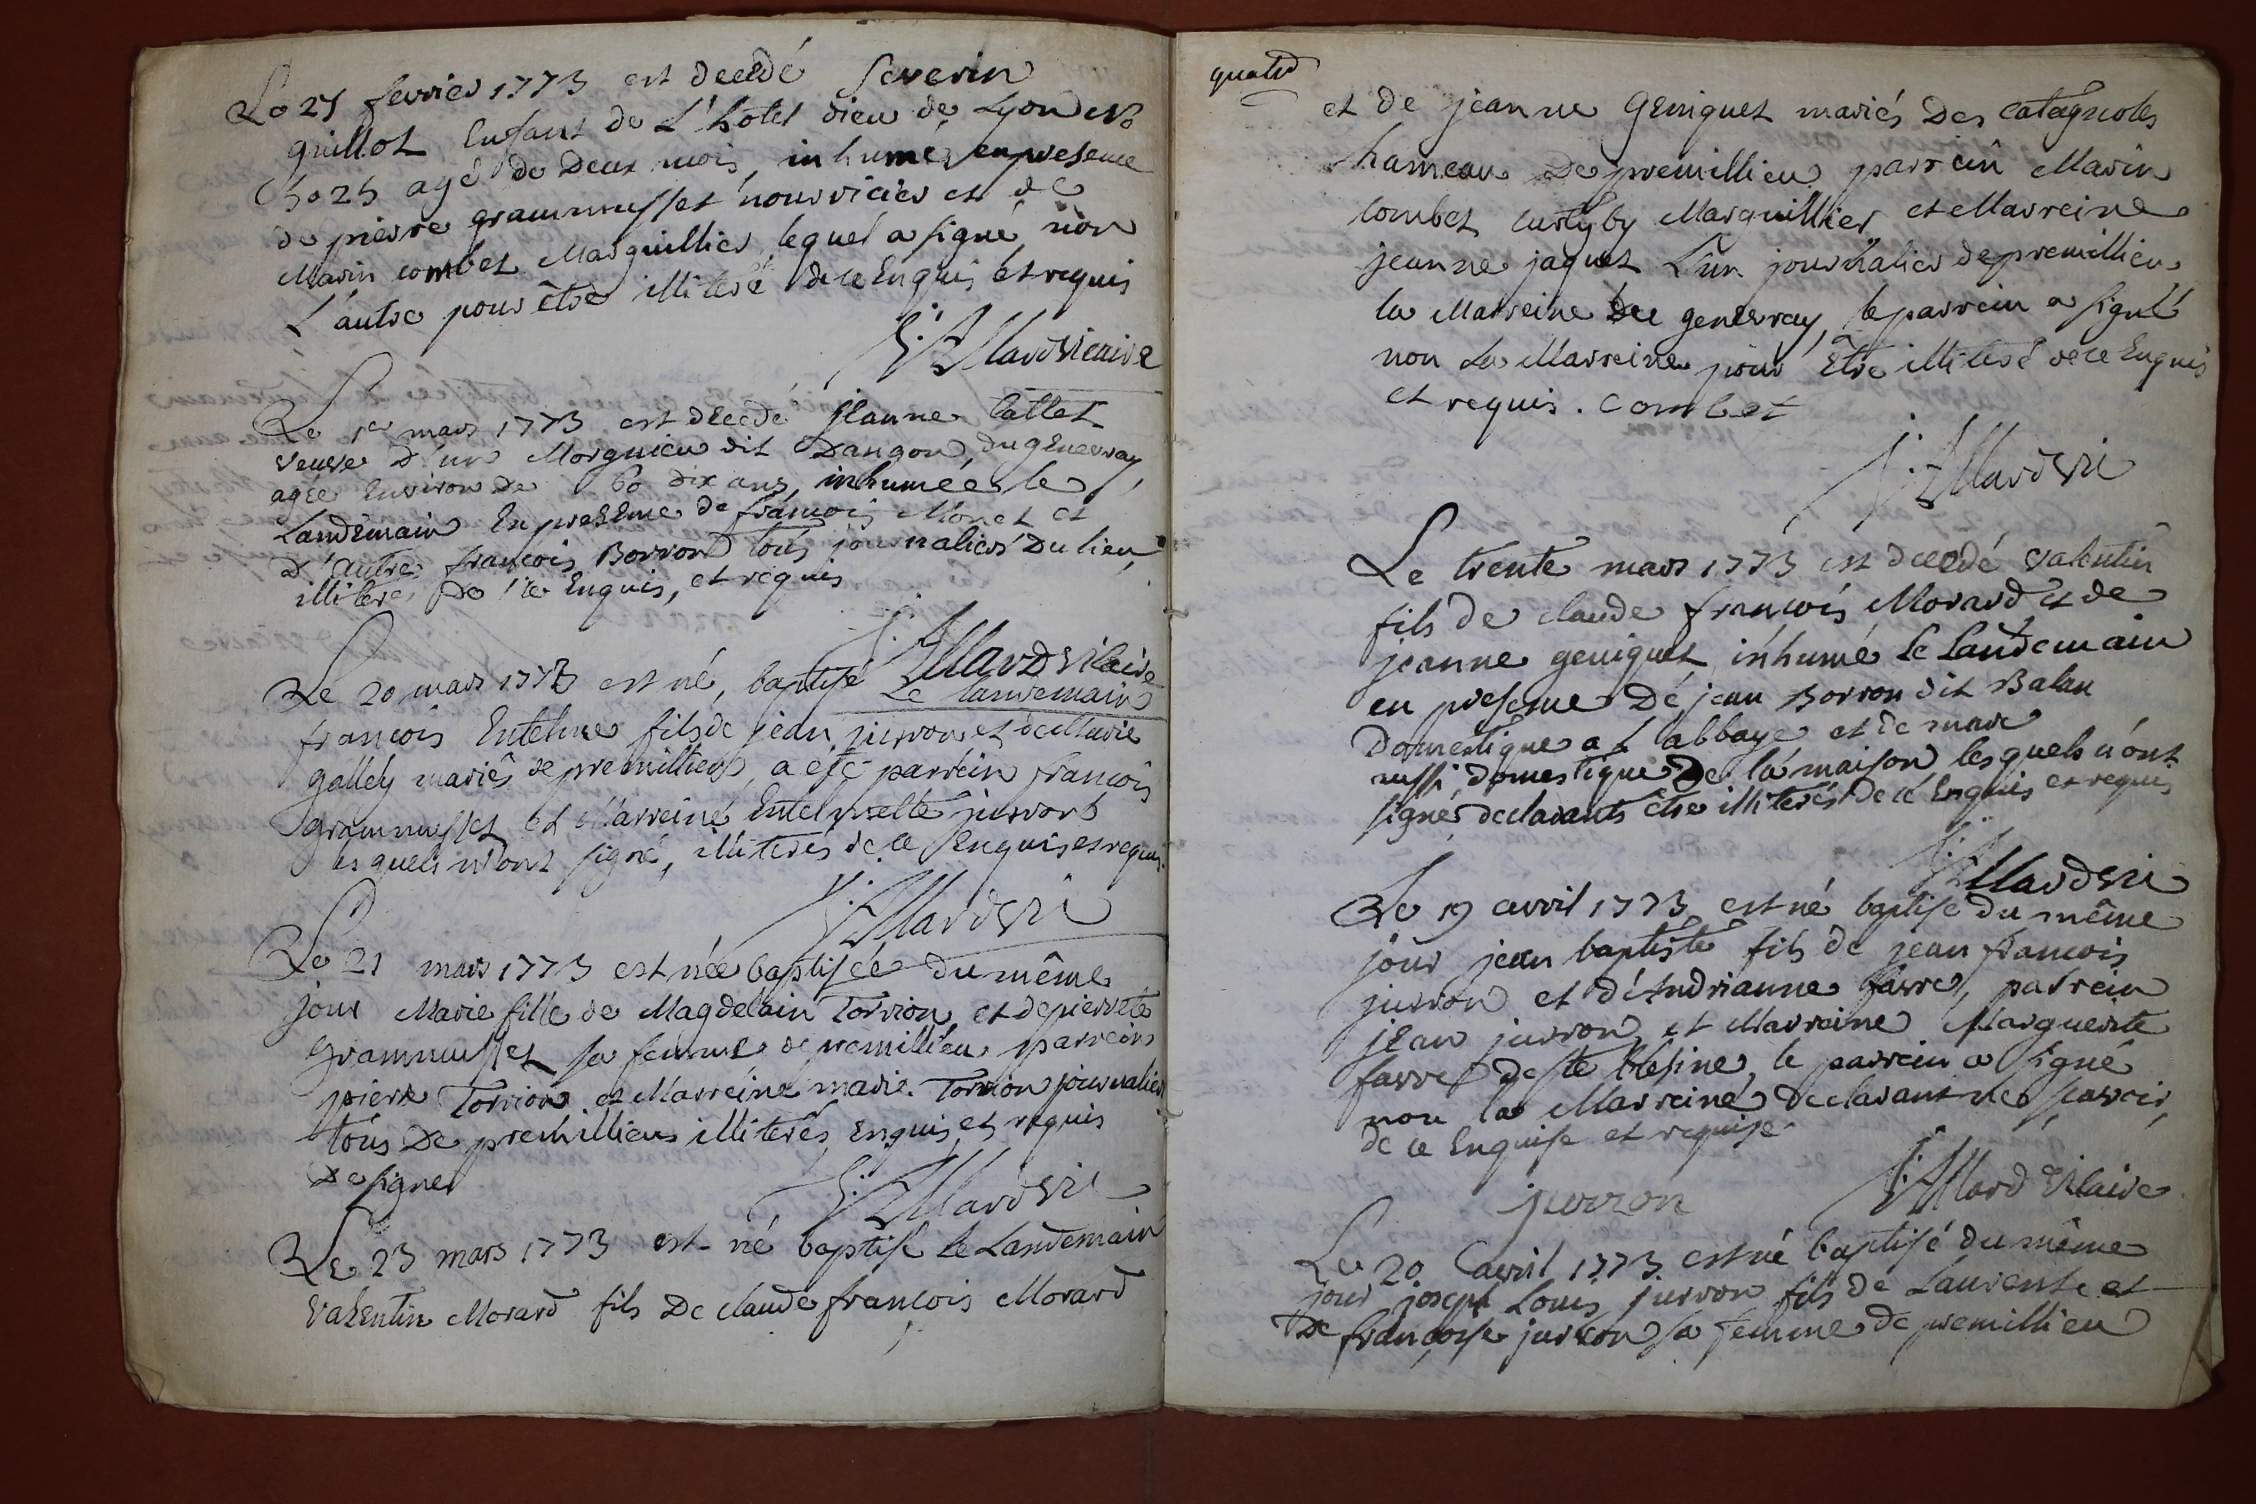 Le 27 fevrier 1773 est decedé Severin
guillot Enfant de L'hotel dieu de Lyon N°
agé de Deux mois, inhumé en presence
de pierre grammusset nourricier et de
Marin combet Marguillier, lequel a signé non
L'autre pour être illiteré de ce Enquis et requis
Allard vicaire
Le 1er mars 1773 est decedé jeanne Callet
veuve d'un Morgnieu dit Dangon, du genevray
agée Environ de 60 dix ans, inhumée le
Landemain En presence de françois Monet et
d'autre françois Borron tous journaliers du lieu,
illiteré De ce Enquis, et requis
Allard vicaire
Le 20 mars 1773 est né, baptisé Le landemain
françois Entelme fils de jean jurron et de Marie
galley mariés de premillieu, a été parrein françois
grammusset et Marreine Entelmette jurron
lesquels n'ont signé, illiterés de ce Enquis et requis.
Allard vic
Le 21 mars 1773 est née baptisée du même
jour Marie fille de Magdelain Torrion et de pierrete
grammusset sa femme de premillieu parrein
pierre Torrion et Marreine marie Torrion journalier
tous De premillieu illiterés Enquis et requis
De signer
Allard vic
Le 23 mars 1773 est né baptisé le Landemain
Valentin Morard fils De claude françois Morard
quatre
et de jeanne Geniquet mariés Des catagnoles
hameau De premillieu parrein Marin
combet Marguillier et Marreine
jeanne jaquet L'un journalier de premillieu
la Marreine du genevray, le parrein a signé
non La Marreine pour Etre illiteré de ce Enquis
et requis. combet
Allard vic
Le trente mars 1773 est decedé valentin
fils de claude françois Morard et de
jeanne geniquet inhumé Le Landemain
en presence De jean Borron dit Balan
Domestique a L'abbaye et de marc
aussi domestique De la maison lesquels n'ont
signé declarants être illiterés de ce Enquis et requis
Allard vic
Le 19 avril 1773 est né baptisé du même
jour jean baptiste fils de jean françois
jurron et d'Andrianne favre, parrein
jean jurron, et Marreine Marguerite
favre de ste blesine, le parrein a signé
non la Marreine Declarant ne scavoir,
de ce Enquise et requise.
jurron
Allard vicaire
Le 20 avril 1773 est né baptisé du même
jour joseph Louis jurron fils de Laurent et
De françoise jurron sa femme de premillieu